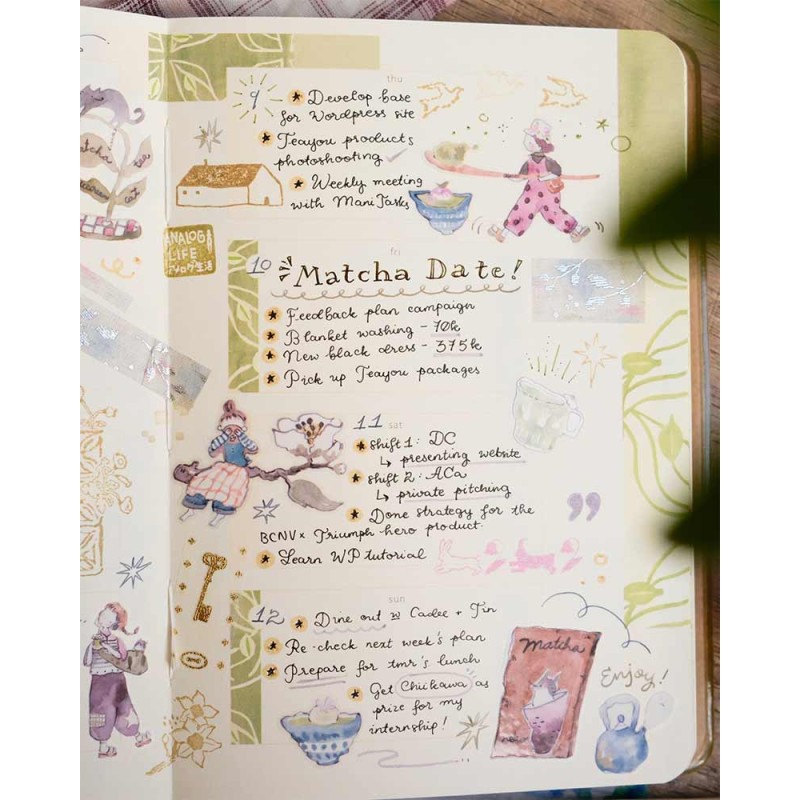 thu
9
★ Develop base
for Wordpress site
★ Teayou products
photoshooting ✓
★ Weekly meeting
with ManiTasks
ANALOG
LIFE
アナログ生活
fri
10
Matcha Date!
★ Feedback plan campaign
★ Blanket washing - 70k
★ New black dress - 375k
★ Pick up Teayou packages
11
sat
★ shift 1: DC
↳ presenting website
★ shift 2: ACa
↳ private pitching
★ Done strategy for the
BCNV x Triumph hero product.
★ Learn WP tutorial
sun
12
★ Dine out w Cadee + Tin
★ Re-check next week's plan
★ Prepare for tmr's lunch
★ Get Chiikawa as
prize for my
internship!
Matcha
Enjoy!